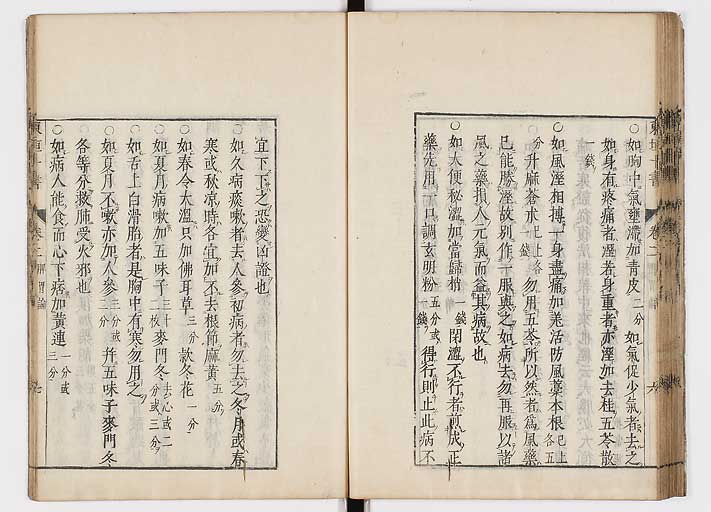 ○如胸中氣壅滯加青皮二分如氣促少氣者去之
如身有疼痛者溼若身重者亦溼加去桂五苓散
一錢
○如風溼相搏一身盡痛加羌活防風藁本根已上各五
分升麻蒼朮已上各一錢勿用五苓所以然者爲風藥
已能勝溼故別作一服與之如病去勿再服以諸
風之藥損人元氣而益其病故也
○如大便秘澀加當歸梢一錢閉澀不行者煎成正
藥先用一口調玄明粉五分或一錢得行則止此病不
宜下下之恐變凶證也
○如久病痰嗽者去人參初病者勿去之冬月或春
寒或秋凉時各宜加不去根節麻黃五分
如春令大溫只加佛耳草三分款冬花一分
○如夏月病嗽加五味子三十二枚麥門冬去心或二分或三分
○如舌上白滑胎者是胸中有寒勿用之
○如夏月不嗽亦加人參三分或二分幷五味子麥門冬
各等分救肺受火邪也
○如病人能食而心下痞加黃連一分或三分
東垣十書
卷二